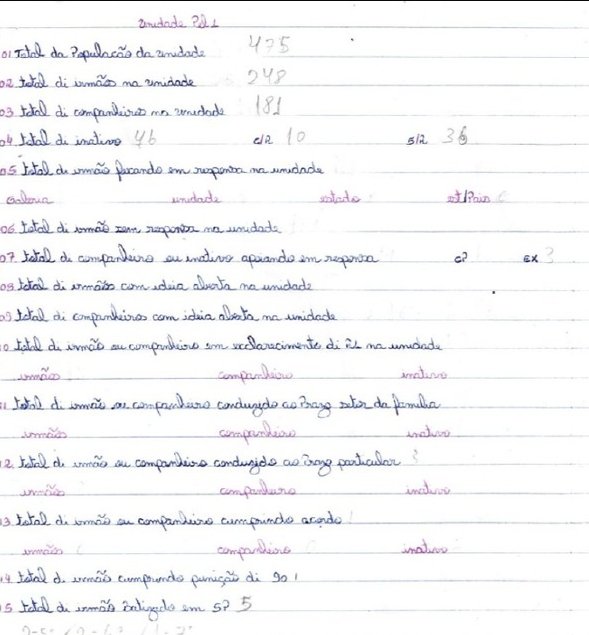 unidade P2 1
01 Total da População da unidade 475
02 total di irmãos na unidade 248
03 total di companheiros na unidade 181
04 total di inativo 46 c/R 10 s/R 36
05 total di irmão ficando em responsa na unidade
Galeria unidade estado est/Pais
06 total di irmão sem responsa na unidade
07 total di companheiro ou inativo apoiando em responsa C? EX 3
08 total di irmãos com ideia aberta na unidade
09 total di companheiros com ideia aberta na unidade
10 total di irmão ou companheiro em esclarecimento di na unidade
irmãos companheiro inativo
11 total di irmão ou companheiro conduzido ao Prazo setor da familia
irmãos companheiro inativo
12 total di irmão ou companheiro conduzido ao Prazo particular
irmãos companheiro inativo
13 total di irmão ou companheiro cumprindo acordo
irmãos companheiro inativo
14 total d. irmão cumprindo punição di 90
15 total di irmão Batizado em SP 5